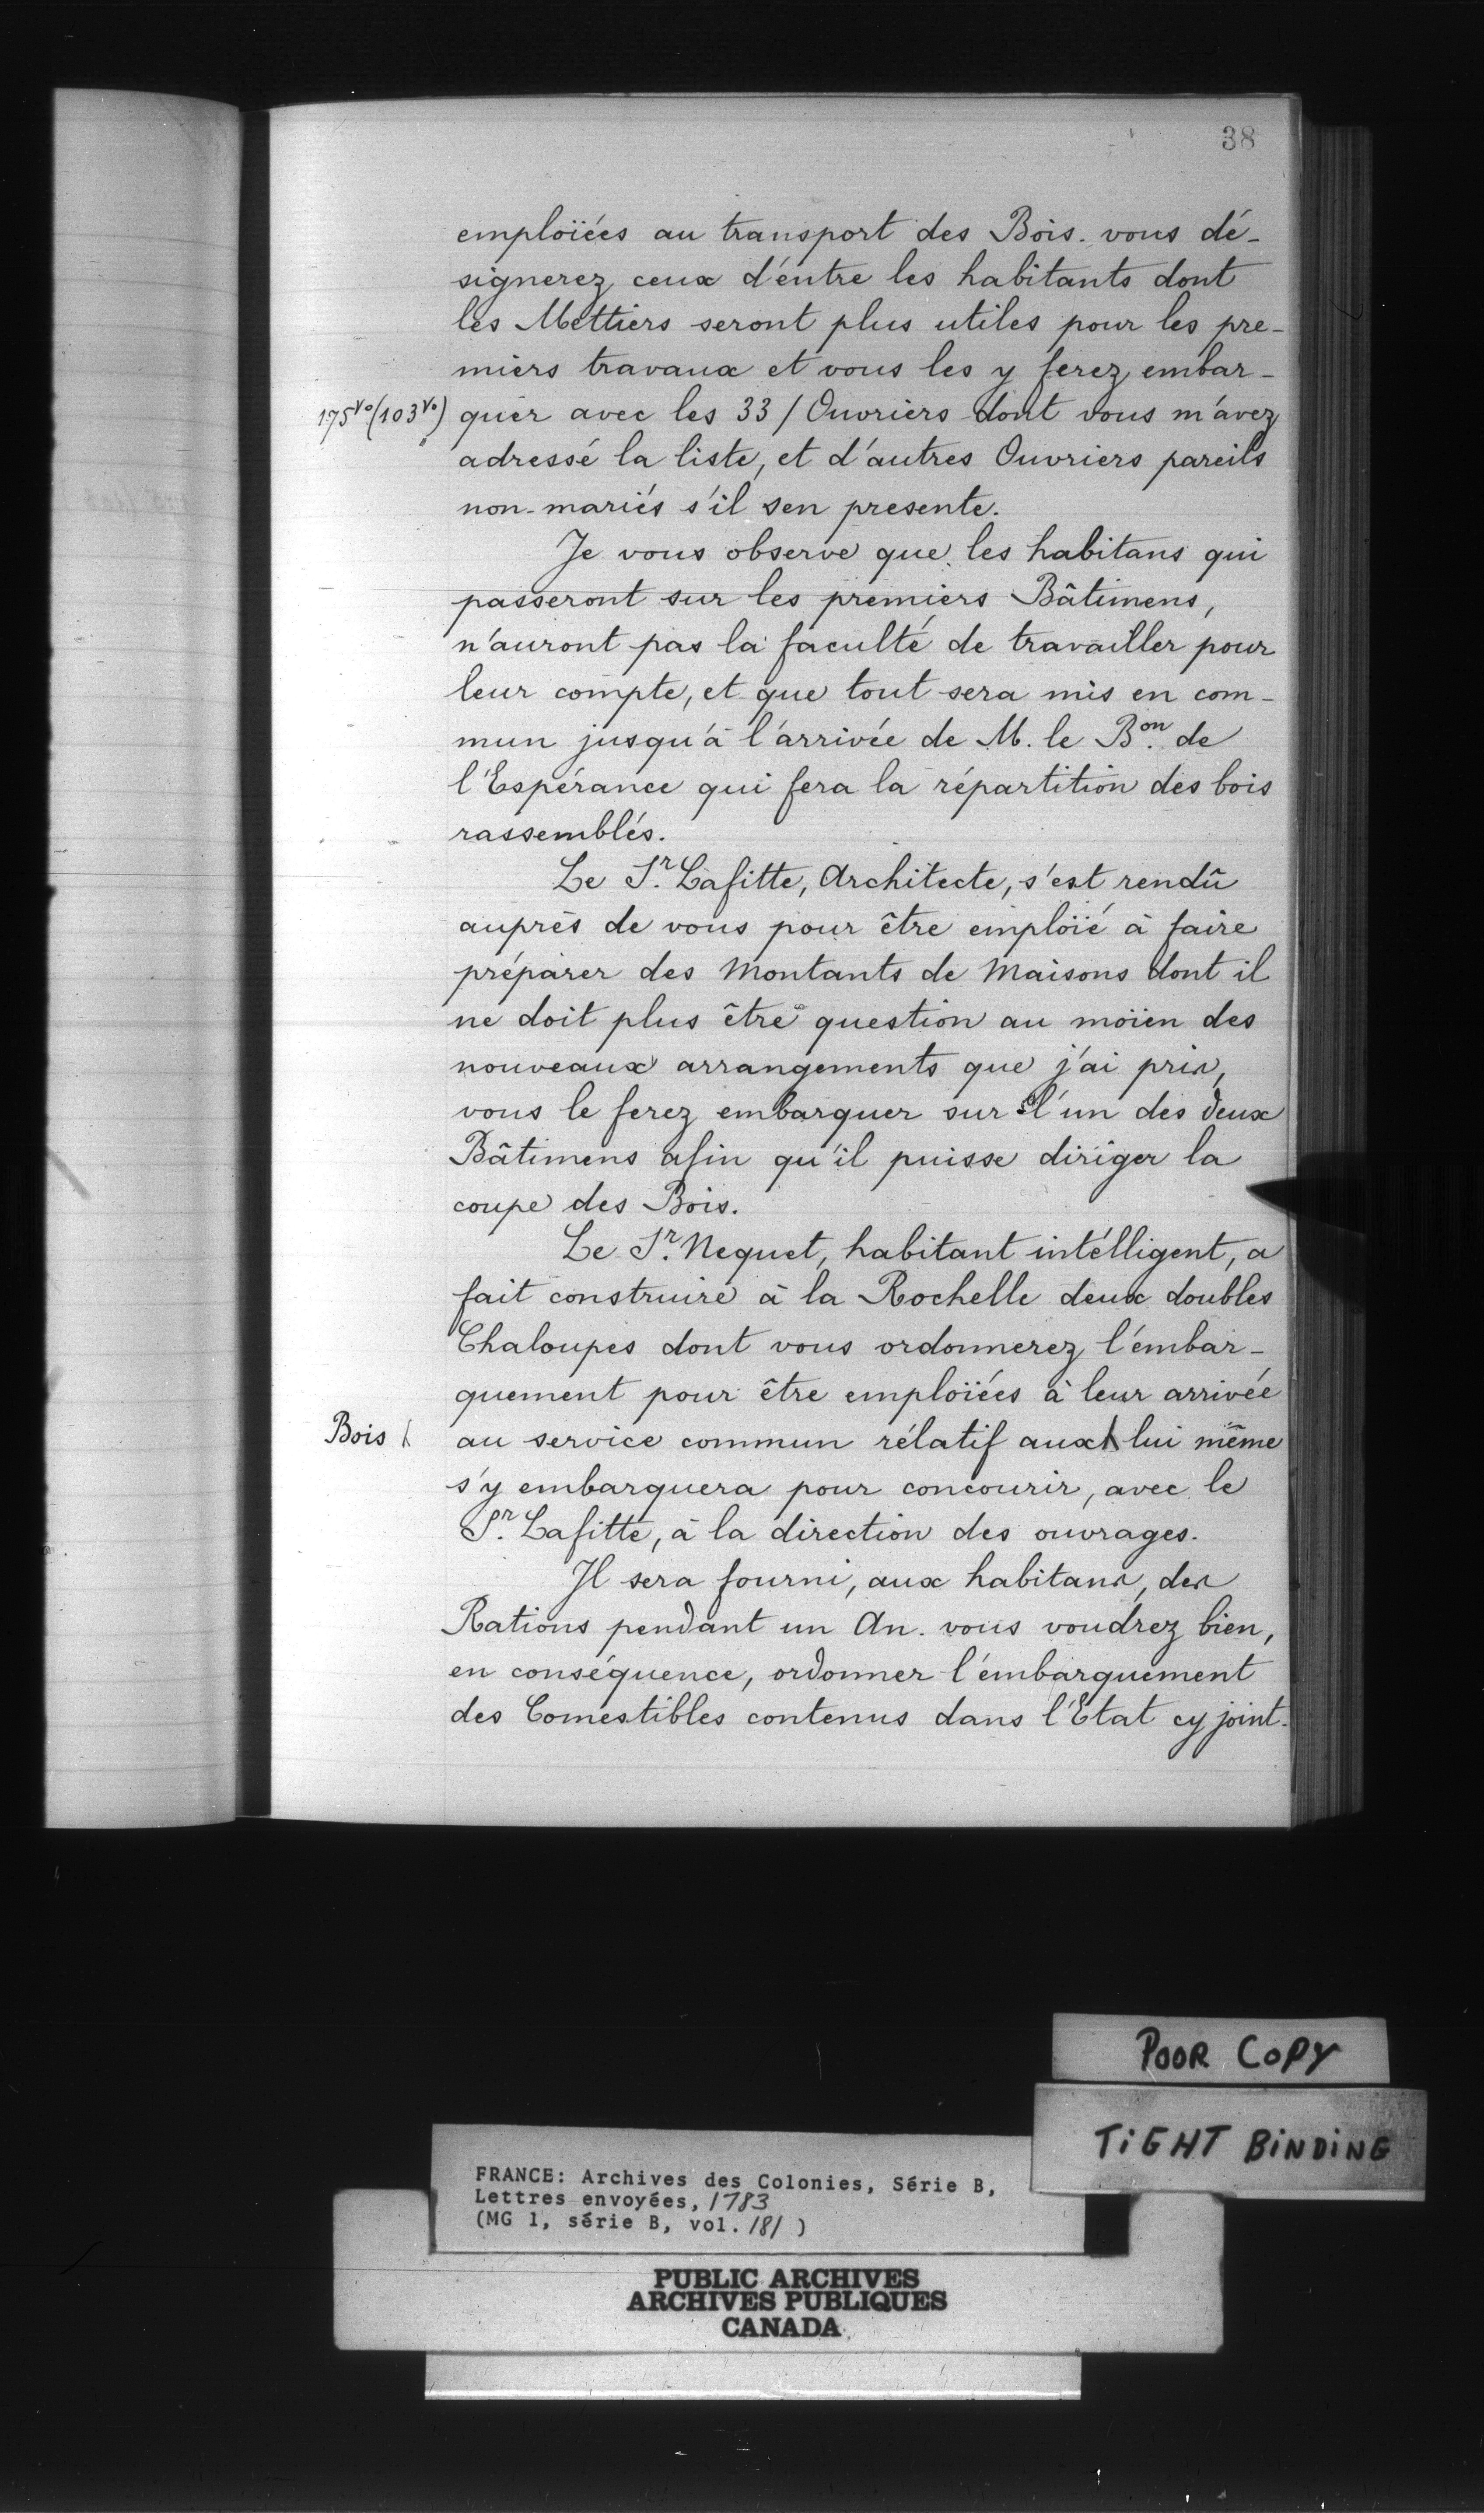 38
emploïées au transport des Bois. vous dé-
signerez ceux d'éntre les habitants dont
les Mettiers seront plus utiles pour les pre-
miers travaux et vous les y ferez embar-
175vo (103vo) quer avec les 33 / Ouvriers dont vous m'avez
adressé la liste, et d'autres Ouvriers pareils
non-mariés s'il sen presente.
Je vous observe que les habitans qui
passeront sur les premiers Bâtimens,
n'auront pas la faculté de travailler pour
leur compte, et que tout sera mis en com-
mun jusqu'à l'arrivée de M. le Bon. de
l'Espérance qui fera la répartition des bois
rassemblés.
Le Sr. Lafitte, Architecte, s'est rendû
auprès de vous pour être emploïé à faire
préparer des Montants de Maisons dont il
ne doit plus être question au moïen des
nouveaux arrangements que j'ai pris,
vous le ferez embarquer sur l'un des deux
Bâtimens afin qu'il puisse diriger la
coupe des Bois.
Le Sr. Nequet, habitant intélligent, a
fait construire à la Rochelle deux doubles
Chaloupes dont vous ordonnerez l'émbar-
quement pour être emploïées à leur arrivée
Bois au service commun rélatif aux lui même
s'y embarquera pour concourir, avec le
Sr. Lafitte, à la direction des ouvrages.
Il sera fourni, aux habitans, des
Rations pendant un An. vous voudrez bien,
en conséquence, ordonner l'émbarquement
des Comestibles contenus dans l'Etat cy joint.
POOR COPY
TiGHT BiNDiNG
FRANCE: Archives des Colonies, Série B,
Lettres envoyées, 1783
(MG 1, série B, vol. 181 )
PUBLIC ARCHIVES
ARCHIVES PUBLIQUES
CANADA